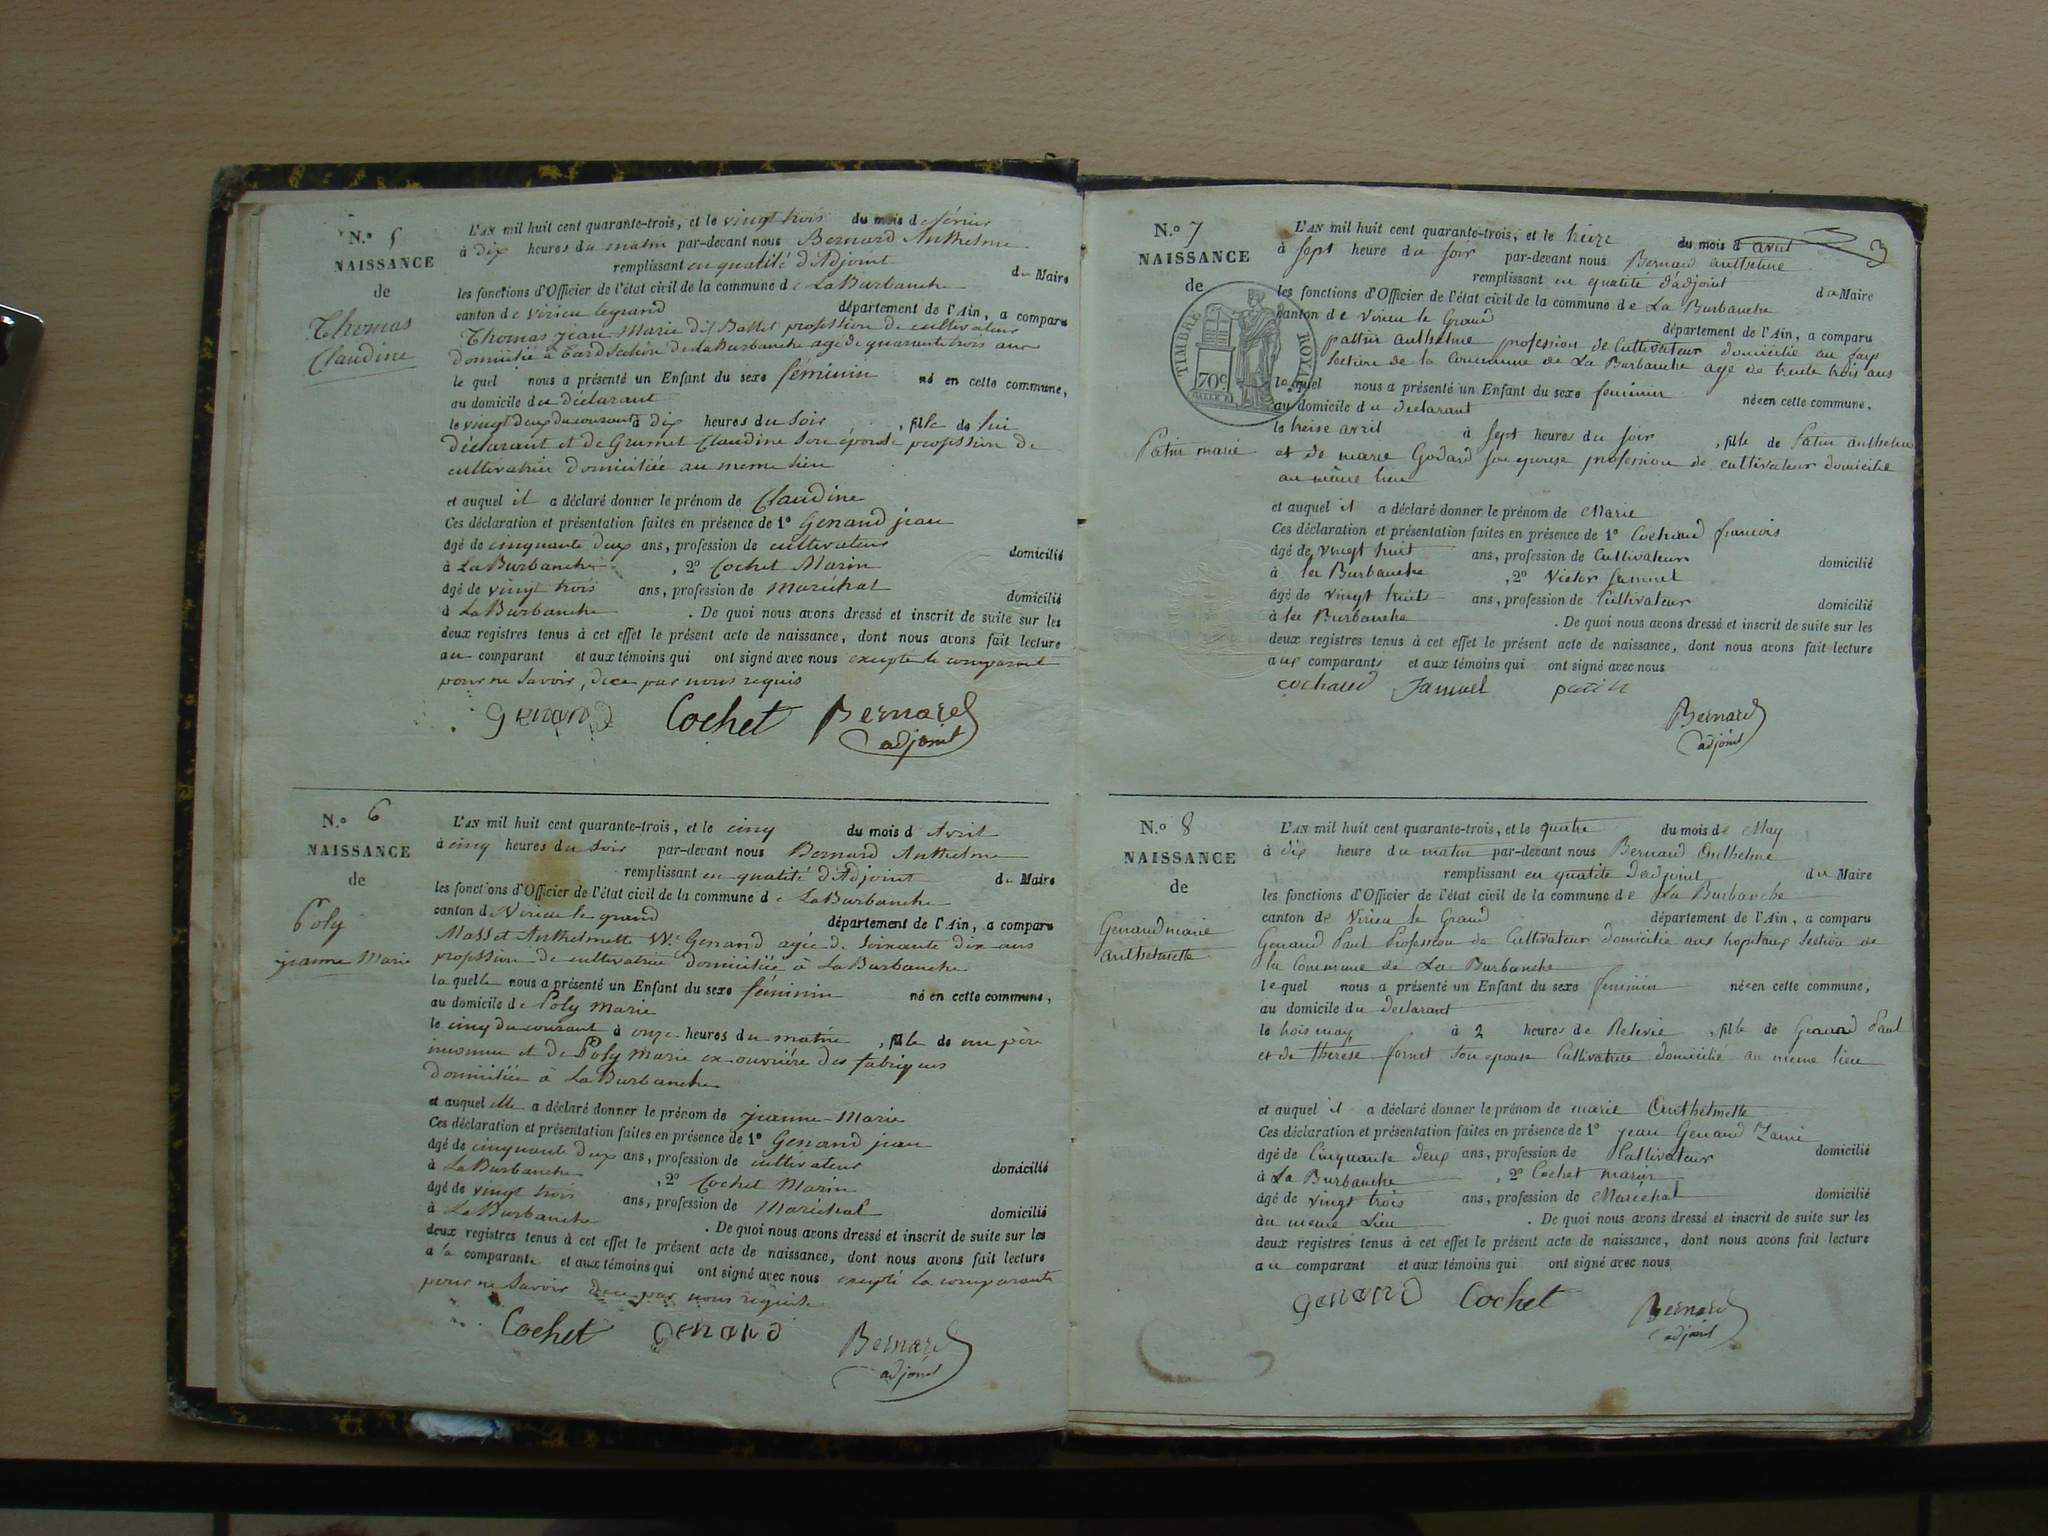 N.º 5
NAISSANCE
de
Thomas
Claudine
L'AN mil huit cent quarante-trois, et le vingt trois du mois d février
à dix heures du matin par-devant nous Bernard Anthelme
remplissant en qualité d'Adjoint du Maire
les fonctions d'Officier de l'état civil de la commune de La Burbanche
canton de Virieu legrand département de l'Ain, a comparu
Thomas jean Marie dit Ballet profession de cultivateur
domicilié à section de La Burbanche agé de quarante trois ans
le quel nous a présenté un Enfant du sexe féminin né en cette commune,
au domicile du déclarant
le vingt deux du courant à dix heures du soir, fille de lui
déclarant et de Grumet Claudine son épouse profession de
cultivatrice domiciliée au meme lieu
et auquel il a déclaré donner le prénom de Claudine
Ces déclaration et présentation faites en présence de 1º Genand jean
âgé de cinquante deux ans, profession de cultivateur domicilié
à La Burbanche, 2º Cochet Marin
âgé de vingt trois ans, profession de Maréchal domicilié
à La Burbanche. De quoi nous avons dressé et inscrit de suite sur les
deux registres tenus à cet effet le présent acte de naissance, dont nous avons fait lecture
au comparant et aux témoins qui ont signé avec nous excepté le comparant
pour ne savoir, de ce par nous requis
Genand Cochet Bernard
adjoint
N.º 6
NAISSANCE
de
Poly
jeanne Marie
L'AN mil huit cent quarante-trois, et le cinq du mois d Avril
à cinq heures du soir par-devant nous Bernard Anthelme
remplissant en qualité d'Adjoint du Maire
les fonctions d'Officier de l'état civil de la commune de La Burbanche
canton de Virieu le grand département de l'Ain, a comparu
Massot Anthelmette Ve Genand agée de soixante dix ans
profession de cultivatrice domiciliée à La Burbanche
la quelle nous a présenté un Enfant du sexe féminin né en cette commune,
au domicile de Poly Marie
le cinq du courant à onze heures du matin, fille de un père
inconnu et de Poly Marie ex ouvrière des fabriques
domiciliée à La Burbanche
et auquel elle a déclaré donner le prénom de jeanne-Marie
Ces déclaration et présentation faites en présence de 1º Genand jean
âgé de cinquante deux ans, profession de cultivateur domicilié
à La Burbanche, 2º Cochet Marin
âgé de vingt trois ans, profession de Maréchal domicilié
à La Burbanche. De quoi nous avons dressé et inscrit de suite sur les
deux registres tenus à cet effet le présent acte de naissance, dont nous avons fait lecture
a la comparante et aux témoins qui ont signé avec nous excepté la comparante
pour ne savoir de ce par nous requise
Cochet Genand Bernard
adjoint
3
N.º 7
NAISSANCE
de
TIMBRE ROYAL
70 c
Patin marie
L'AN mil huit cent quarante-trois, et le treize du mois d avril
à sept heure du soir par-devant nous Bernard anthelme
remplissant en qualité d'adjoint du Maire
les fonctions d'Officier de l'état civil de la commune de La Burbanche
canton de Virieu le Grand département de l'Ain, a comparu
pattin anthelme profession de Cultivateur domicilié au fays
section de la Commune de La Burbanche age de trente trois ans
le quel nous a présenté un Enfant du sexe feminin née en cette commune,
au domicile du déclarant
le treise avril à sept heures du soir, fille de Patin anthelme
et de marie Godard son epouse profession de cultivateur domicilié
au même lieu
et auquel il a déclaré donner le prénom de Marie
Ces déclaration et présentation faites en présence de 1º Cochaud francois
âgé de vingt huit ans, profession de Cultivateur domicilié
à la Burbanche, 2º Victor Samuel
âgé de vingt huit ans, profession de Cultivateur domicilié
à la Burbanche. De quoi nous avons dressé et inscrit de suite sur les
deux registres tenus à cet effet le présent acte de naissance, dont nous avons fait lecture
aux comparants et aux témoins qui ont signé avec nous
cochaud Samuel patin
Bernard
adjoint
N.º 8
NAISSANCE
de
Genand marie
anthelmette
L'AN mil huit cent quarante-trois, et le quatre du mois de May
à dix heure du matin par-devant nous Bernard Anthelme
remplissant en qualité d'adjoint du Maire
les fonctions d'Officier de l'état civil de la commune de La Burbanche
canton de Virieu le Grand département de l'Ain, a comparu
Genand Paul Profession de Cultivateur domicilié aux hopitaux Section de
la Commune de La Burbanche
le quel nous a présenté un Enfant du sexe feminin née en cette commune,
au domicile du declarant
le trois may à 2 heures de Relevée, fille de Genand Paul
et de thérèse fornet son epouse Cultivatrice domicilié au meme lieu
et auquel il a déclaré donner le prénom de marie Anthelmette
Ces déclaration et présentation faites en présence de 1º jean Genand
âgé de Cinquante deux ans, profession de Cultivateur domicilié
à La Burbanche, 2º Cochet marin
âgé de vingt trois ans, profession de Marechal domicilié
au meme Lieu. De quoi nous avons dressé et inscrit de suite sur les
deux registres tenus à cet effet le présent acte de naissance, dont nous avons fait lecture
au comparant et aux témoins qui ont signé avec nous
Genand Cochet Bernard
adjoint